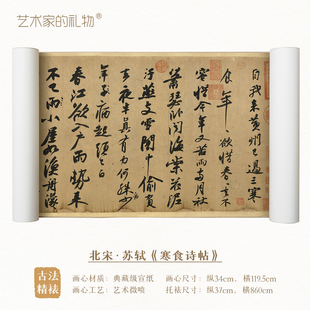 艺术家的礼物®
自我來黃州已過三寒
食年〻欲惜春春去不
容惜今年又苦雨兩月秋
蕭瑟卧聞海棠花泥
汙燕支雪闇中偷負
去夜半真有力何殊少
年子病起頭已白
春江欲入戶雨勢來
不已雨小屋如漁舟濛
北宋·苏轼《寒食诗帖》
古法
精裱
画心材质：典藏级宣纸
画心尺寸：纵34cm，横119.5cm
画心工艺：艺术微喷
托裱尺寸：纵37cm，横860cm